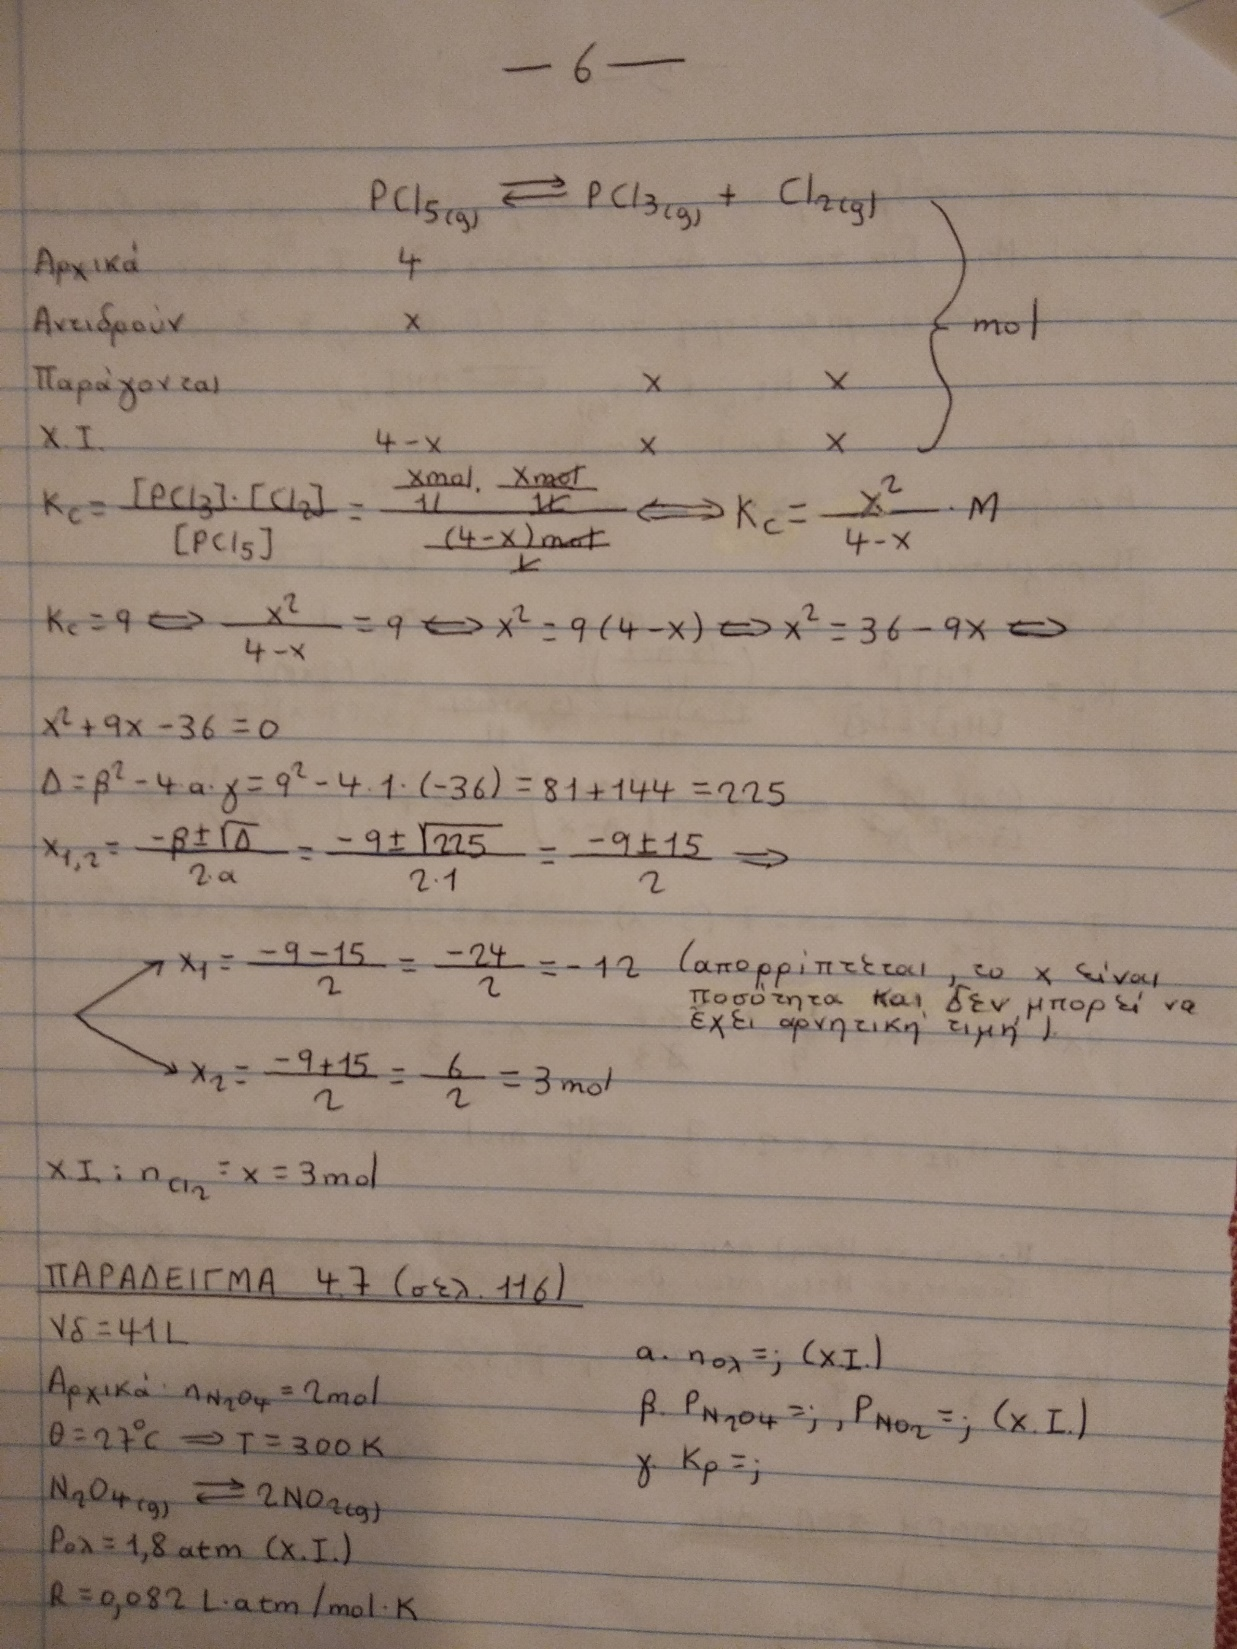 — 6 —
PCl5(g) ⇌ PCl3(g) + Cl2(g)
Αρχικά 4
Αντιδρούν x mol
Παράγονται x x
Χ.Ι. 4-x x x
Kc = [PCl3]·[Cl2] / [PCl5] = (xmol/1L · xmol/1L) / ((4-x)mol/L) ⟺ Kc = x²/(4-x) · M
Kc = 9 ⟺ x²/(4-x) = 9 ⟺ x² = 9(4-x) ⟺ x² = 36 - 9x ⟺
x² + 9x - 36 = 0
Δ = β² - 4·α·γ = 9² - 4·1·(-36) = 81 + 144 = 225
x1,2 = (-β ± √Δ)/(2·α) = (-9 ± √225)/(2·1) = (-9 ± 15)/2 ⟹
x1 = (-9-15)/2 = -24/2 = -12 (απορρίπτεται, το x είναι
ποσότητα και δεν μπορεί να
έχει αρνητική τιμή).
x2 = (-9+15)/2 = 6/2 = 3 mol
Χ.Ι: nCl2 = x = 3 mol
ΠΑΡΑΔΕΙΓΜΑ 4.7 (σελ. 116)
Vδ = 41 L
Αρχικά: nN2O4 = 2 mol
θ = 27°C ⟹ T = 300 K
N2O4(g) ⇌ 2NO2(g)
Pολ = 1,8 atm (Χ.Ι.)
R = 0,082 L·atm/mol·K
α. nολ = ; (Χ.Ι.)
β. PN2O4 = ; , PNO2 = ; (Χ.Ι.)
γ. Kp = ;